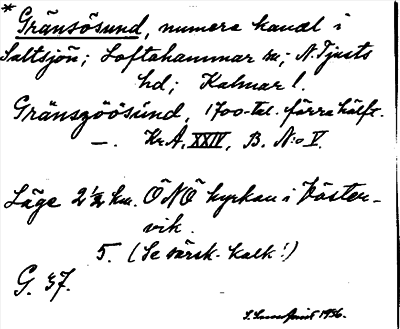 * Gränsösund, numera kanal i
Saltsjön; Loftahammar sn; N. Tjusts
hd; Kalmar l.
Gränszöösúnd, 1700-tal. förra hälft.
—. Kr. A. XXIV, B. N:o V.
Läge 2 ½ km. ÖNÖ kyrkan i Väster-
vik.
5. (Se särsk. kalk!)
G. 37.
1936.